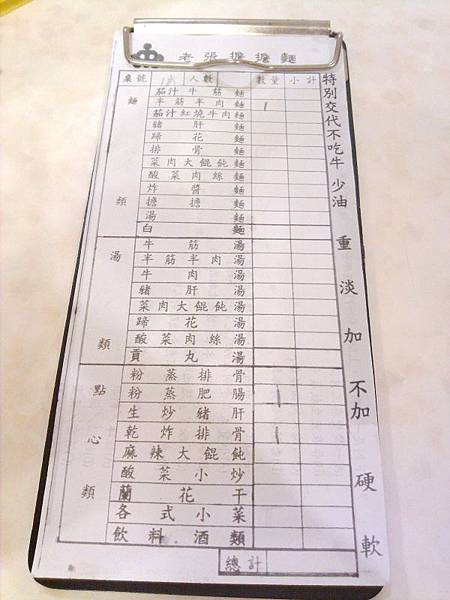 老張擔擔麵
桌號 人數 數量 小計
麵類
茄汁牛筋麵
半筋半肉麵 1
茄汁紅燒牛肉麵
豬肝麵
蹄花麵
排骨麵
菜肉大餛飩麵
酸菜肉絲麵
炸醬麵
擔擔麵
湯麵
白麵
湯類
牛筋湯
半筋半肉湯
牛肉湯
豬肝湯
菜肉大餛飩湯
蹄花湯
酸菜肉絲湯
貢丸湯
點心類
粉蒸排骨
粉蒸肥腸 1
生炒豬肝
乾炸排骨 1
麻辣大餛飩
酸菜小炒
蘭花干
各式小菜
飲料酒類
總計
特別交代不吃牛 少油 重 淡 加 不加 硬 軟